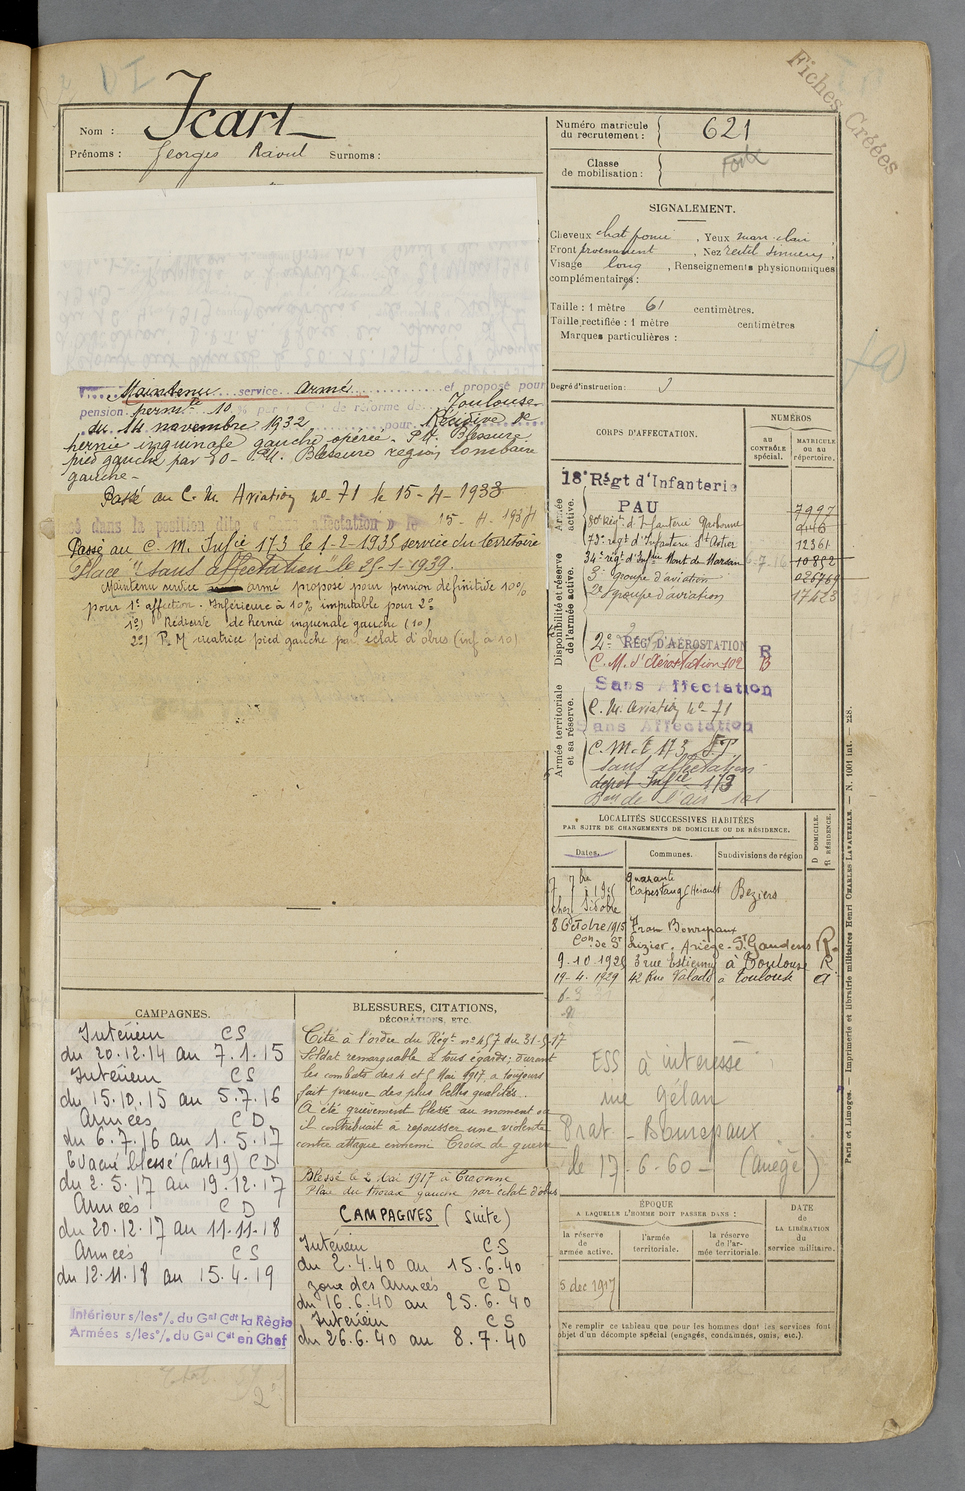 Fiches Créées
Nom : Icart
Prénoms : Georges Raoul Surnoms :
Numéro matricule
du recrutement : 621
Classe
de mobilisation :
SIGNALEMENT.
Cheveux chat foncé , Yeux marr. clair
Front proéminent , Nez rectil. sinueux .
Visage long , Renseignements physionomiques
complémentaires :
Taille : 1 mètre 61 centimètres.
Taille rectifiée : 1 mètre centimètres
Marques particulières :
Degré d'instruction : 3
Maintenu service armé et proposé pour
pension perm.te 10 % par la Con de réforme de Toulouse
du 14 novembre 1932 pour Récidive de
hernie inguinale gauche opérée. P.M. Blessure
pied gauche par EO - P.M. Blessure région lombaire
gauche -
Passé au C. M. Aviation no 71 le 15-4-1933
dans la position dite « Sans affectation » le 15-4-1937
Passé au C. M. Infie 173 le 1-2-1935 service du territoire
"Placé" sans affectation le 25-1-1939.
Maintenu service armé proposé pour pension définitive 10%
pour 1e affection. Inférieure à 10% imputable pour 2e
1o) Récidive de hernie inguinale gauche (10)
2o) P. M cicatrice pied gauche par éclat d'obus (inf à 10)
CORPS D'AFFECTATION.
NUMÉROS
AU
CONTRÔLE
spécial.
MATRICULE
OU AU
répertoire.
Armée
active.
Disponibilité et réserve
de l'armée active.
Armée territoriale
et sa réserve.
18e Régt d'Infanterie
PAU 7997
80e Régt d'Infanterie Narbonne
73e régt d'Infanterie 12361
34e régt d'Infrie Mont de Marsan 6-7-16 10852
3e groupe d'aviation 026769
2e groupe d'aviation 17423
2e RÉGt D'AÉROSTATION R
C. M. d'Aérostation 102 B
Sans Affectation
C. M. Aviation no 71
Sans Affectation
C. M. I 173 S.T.
sans affectation
dépôt Infie 173
Bon de l'air 101
LOCALITÉS SUCCESSIVES HABITÉES
PAR SUITE DE CHANGEMENTS DE DOMICILE OU DE RÉSIDENCE.
Dates. Communes. Subdivisions de région D DOMICILE. R RÉSIDENCE.
Quarante
Capestang (Hérault Béziers
8 Octobre 1915 Prat Bonrepaux
Con de St Lizier. Ariège - St Gaudens R.
9.10.1926 3 rue Estienne à Toulouse R
19-4-1929 42 Rue Valade à Toulouse d
ESS à intéressé
rue Gélan
Prat - Bonrepaux
le 17-6-60 - (Ariège)
CAMPAGNES.
Intérieur CS
du 20.12.14 au 7.1.15
Intérieur CS
du 15.10.15 au 5.7.16
Armées CD
du 6.7.16 au 1.5.17
Evacué blessé (art 19) CD
du 2.5.17 au 19.12.17
Armées CD
du 20.12.17 au 11.11.18
Armées CS
du 12.11.18 au 15.4.19
Intérieur s/les o/. du Gal Cdt la Région
Armées s/les o/. du Gal Cdt en Chef
BLESSURES, CITATIONS,
DÉCORATIONS, ETC.
Cité à l'ordre du Régt no 457 du 31-5-17
Soldat remarquable à tous égards ; durant
les combats des 4 et 5 Mai 1917, a toujours
fait preuve des plus belles qualités.
A été grièvement blessé au moment où
il contribuait à repousser une violente
contre attaque ennemi Croix de guerre
Blessé le 2 Mai 1917 à Craonne
Plaie du thorax gauche par éclat d'obus
CAMPAGNES (suite)
Intérieur CS
du 2.4.40 au 15.6.40
zone des Armées CD
du 16.6.40 au 25.6.40
Intérieur CS
du 26.6.40 au 8.7.40
ÉPOQUE
A LAQUELLE L'HOMME DOIT PASSER DANS :
DATE
de
LA LIBÉRATION
du
service militaire.
la réserve
de
armée active.
l'armée
territoriale.
la réserve
de l'ar-
mée territoriale.
5 dec 1917
Ne remplir ce tableau que pour les hommes dont les services font
objet d'un décompte spécial (engagés, condamnés, omis, etc.).
Paris et Limoges. — Imprimerie et librairie militaires Henri CHARLES LAVAUZELLE. — N. 1001 int. — 218.